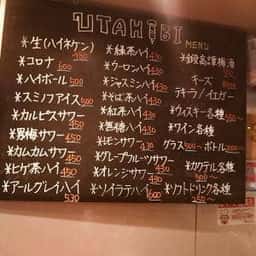 UTAHIBI MENU
*生(ハイネケン)
*コロナ 600
*ハイボール 500
*スミノフアイス 600
*カルピスサワー 450
*男梅サワー 450
*カムカムサワー 450
*ヒゲ茶ハイ 450
*アールグレイハイ 530
*緑茶ハイ 430
*ウーロンハイ 430
*ジャスミンハイ 430
*そば茶ハイ 430
*紅茶ハイ 430
*黒糖ハイ 430
*レモンサワー 430
*グレープフルーツサワー 430
*オレンジサワー 430
*ソイラテハイ 600
*鍛高譚梅酒
チーズ
テキーラ/イエガー
*ウィスキー各種
*ワイン各種
グラス 500~ ボトル
*カクテル各種
*ソフトドリンク各種 250~